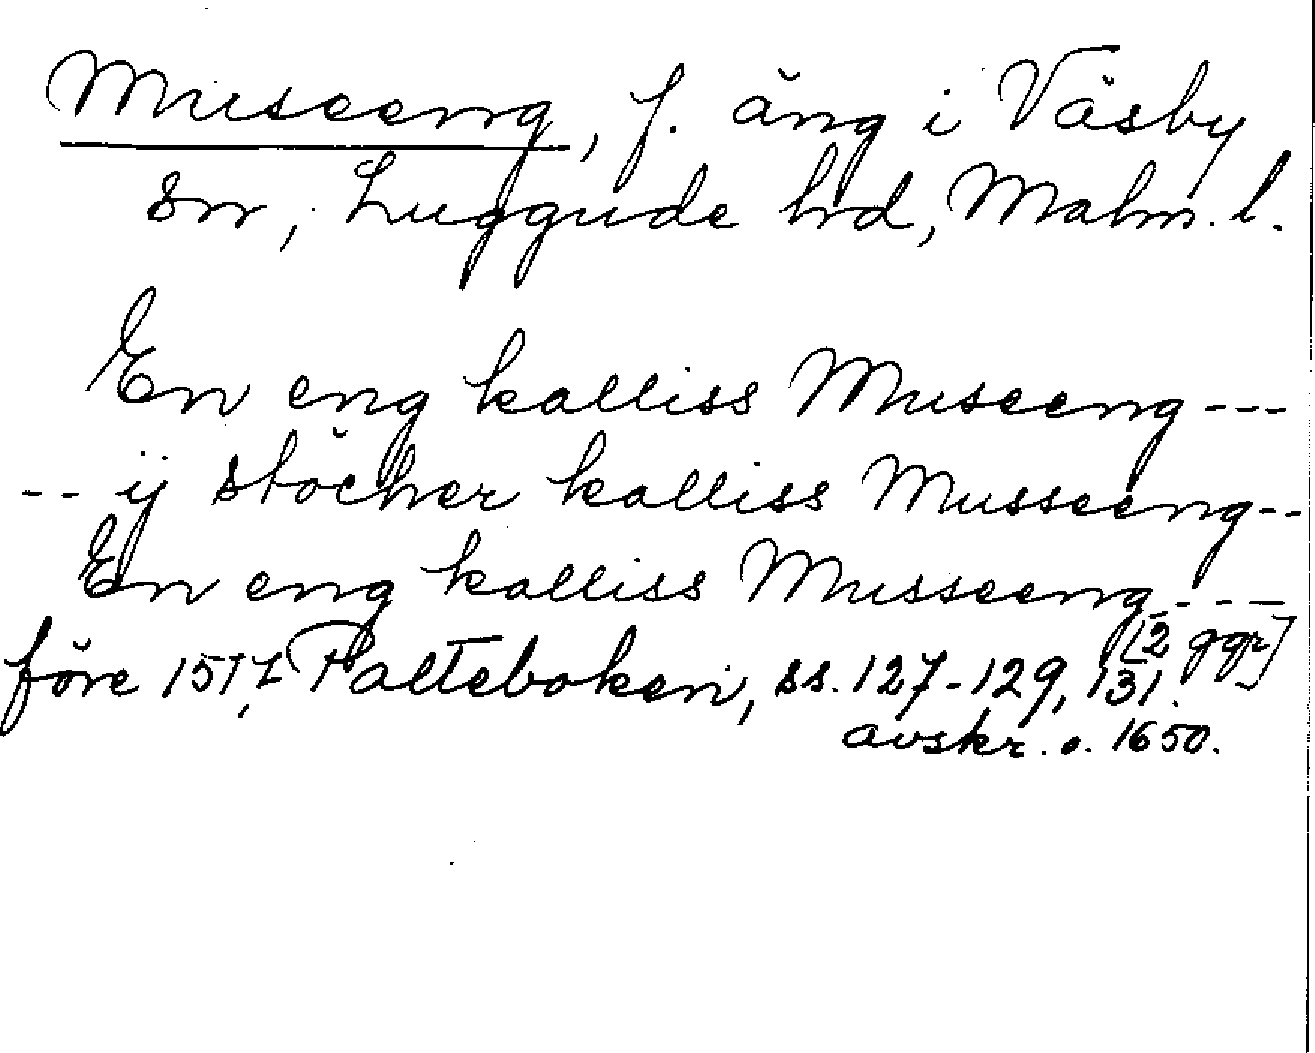 Museeng, f. äng i Väsby
sn, Luggude hd, Malm. l.
En eng kalliss Museeng ---
-- ij stöcher kalliss Musseeng --
En eng kalliss Musseeng ---
[2 ggr]
före 1517, Palteboken, ss. 127-129, 131.
avskr. o. 1650.